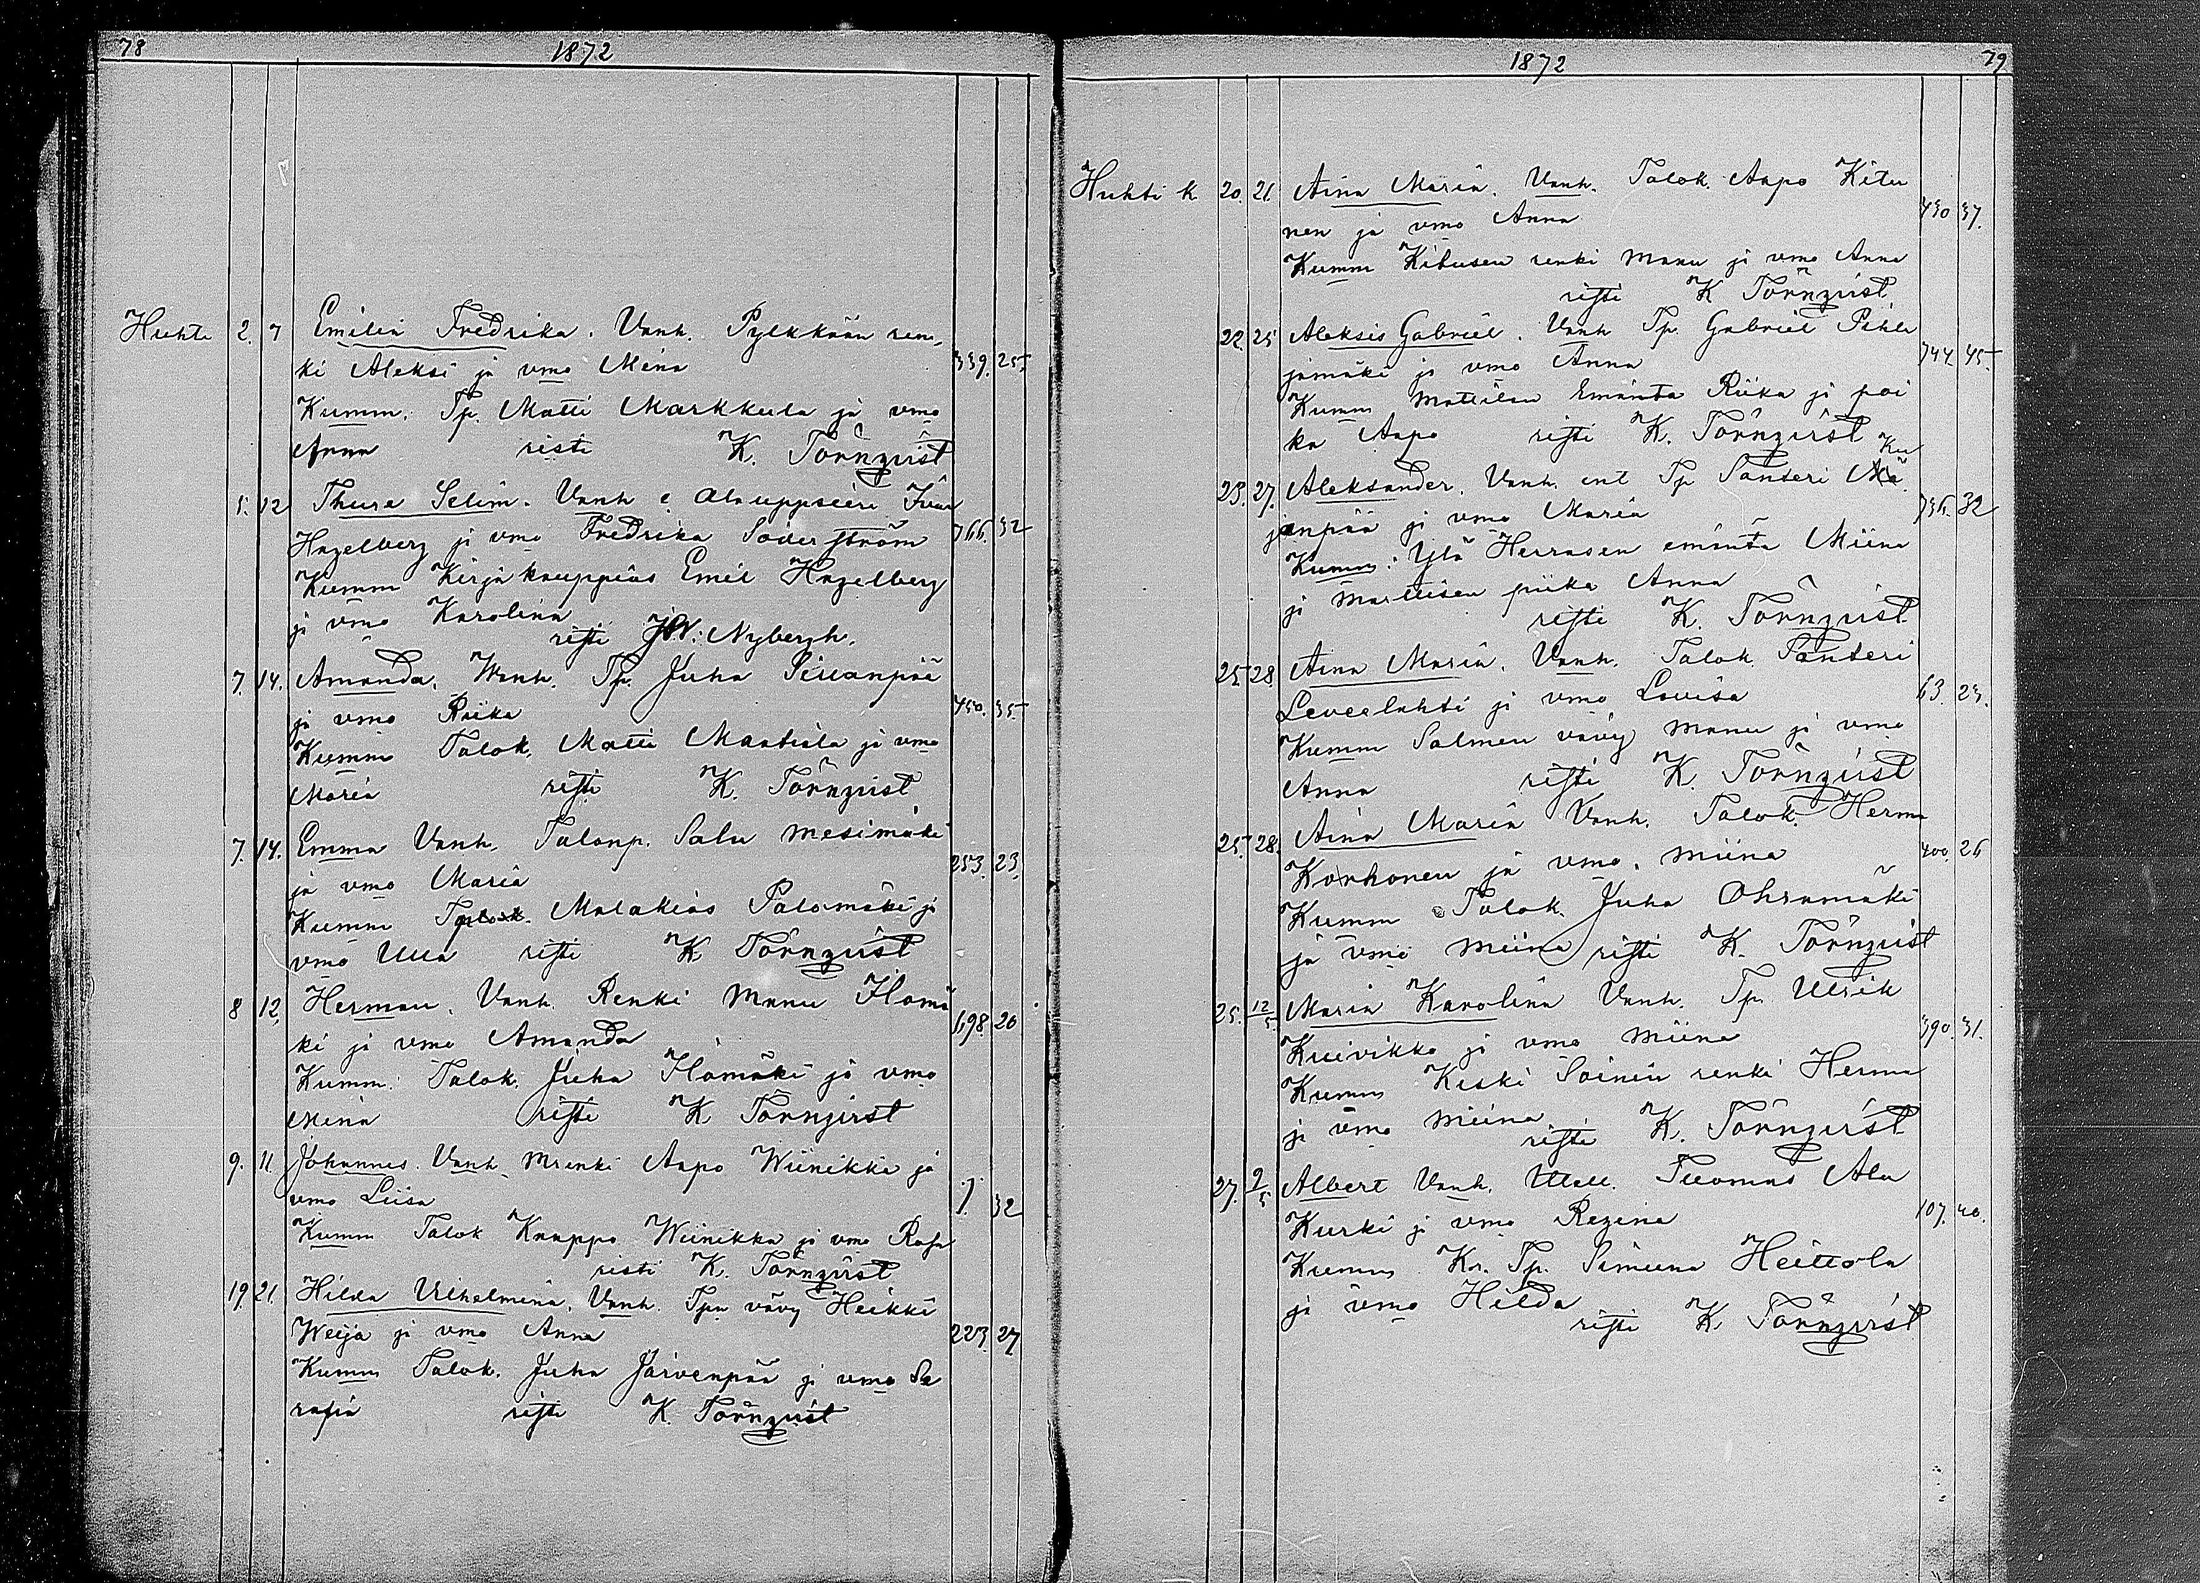 78 1872
Huhti 2. 7 Emilia Fredrika. Vanh. Pylkkään ren-
ki Aleksi ja vmo Mina 339. 25.
Kumm. Tp. Matti Markkula ja vmo
Anna risti K. Törnqvist
5. 12 Thure Selim. Vanh e. Alauppseeri
Hagelberg ja vmo Fredrika Söderström 766. 32
Kumm Kirjakauppias Emil Hagelberg
ja vmo Karolina
risti Nybergh.
7. 14. Amanda. Vanh. Tp. Juha Sillanpää
ja vmo Riika 450. 35
Kumm Talok. Matti Mantiala ja vmo
Maria risti K. Törnqvist
7. 14. Emma Vanh. Talonp. Salu Mesimäki
ja vmo Maria 253. 23.
Kumm Malakias Palomäki ja
vmo Ulla risti K Törnqvist
8 12. Herman. Vanh. Renki Manu Ilomä
ki ja vmo Amanda 698. 20
Kumm. Talok. Juha Ilomäki ja vmo
Mina risti K Törnqvist
9. 11 Johannes. Vanh. Mrenki Aapo Wiinikka ja
vmo Liisa 7. 32
Kumm Talok Kaappo Wiinikka ja vmo Rosa
risti K. Törnqvist
19. 21. Hilda Vilhelmina. Vanh. Tpn vävy Heikki
Weija ja vmo Anna 223 27
Kumm Talok. Juha Järvenpää ja vmo Se
rafia risti K. Törnqvist
1872 79
Huhti k 20. 21. Aina Maria. Vanh. Talok. Aapo Kitu
nen ja vmo Anna 430 37.
Kumm Kitusen renki Manu ja vmo Anna
risti K Törnqvist
22. 25 Aleksis Gabriel. Vanh Tp. Gabriel Pihla
jamäki ja vmo Anna 744. 45
Kumm Mattilan Emäntä Riika ja poi
ka Aapo risti K. Törnqvist
23. 27. Aleksander. Vanh. ent Tp Santeri Mä
janpää ja vmo Maria 32
Kumm: Ylä Herrasen emäntä Miina
ja Marttisen piika Anna
risti K. Törnqvist
25 28. Aina Maria. Vanh. Talok. Santeri
Leveelahti ja vmo Lovisa 63. 23.
Kumm Salmen vävy Manu ja vmo
Anna risti K. Törnqvist
25. 28. Aina Maria Vanh. Talok. Herma
Korhonen ja vmo. Miina 400. 26
Kumm Talok. Juha Ohramäki
ja vmo Miina risti K. Törnqvist
25. 12/5 Maria Karolina Vanh. Tp. Ulrik
Kuivikko ja vmo Miina 390. 31.
Kumm Keski Soinin renki Herma
ja vmo Miina.
risti K. Törnqvist
27. 9/5 Albert Vanh. Tuomas Ala
Kurki ja vmo Regina 107. 40.
Kumm Kr. Tp. Simuna Heittola
ja vmo Hilda
risti K. Törnqvist